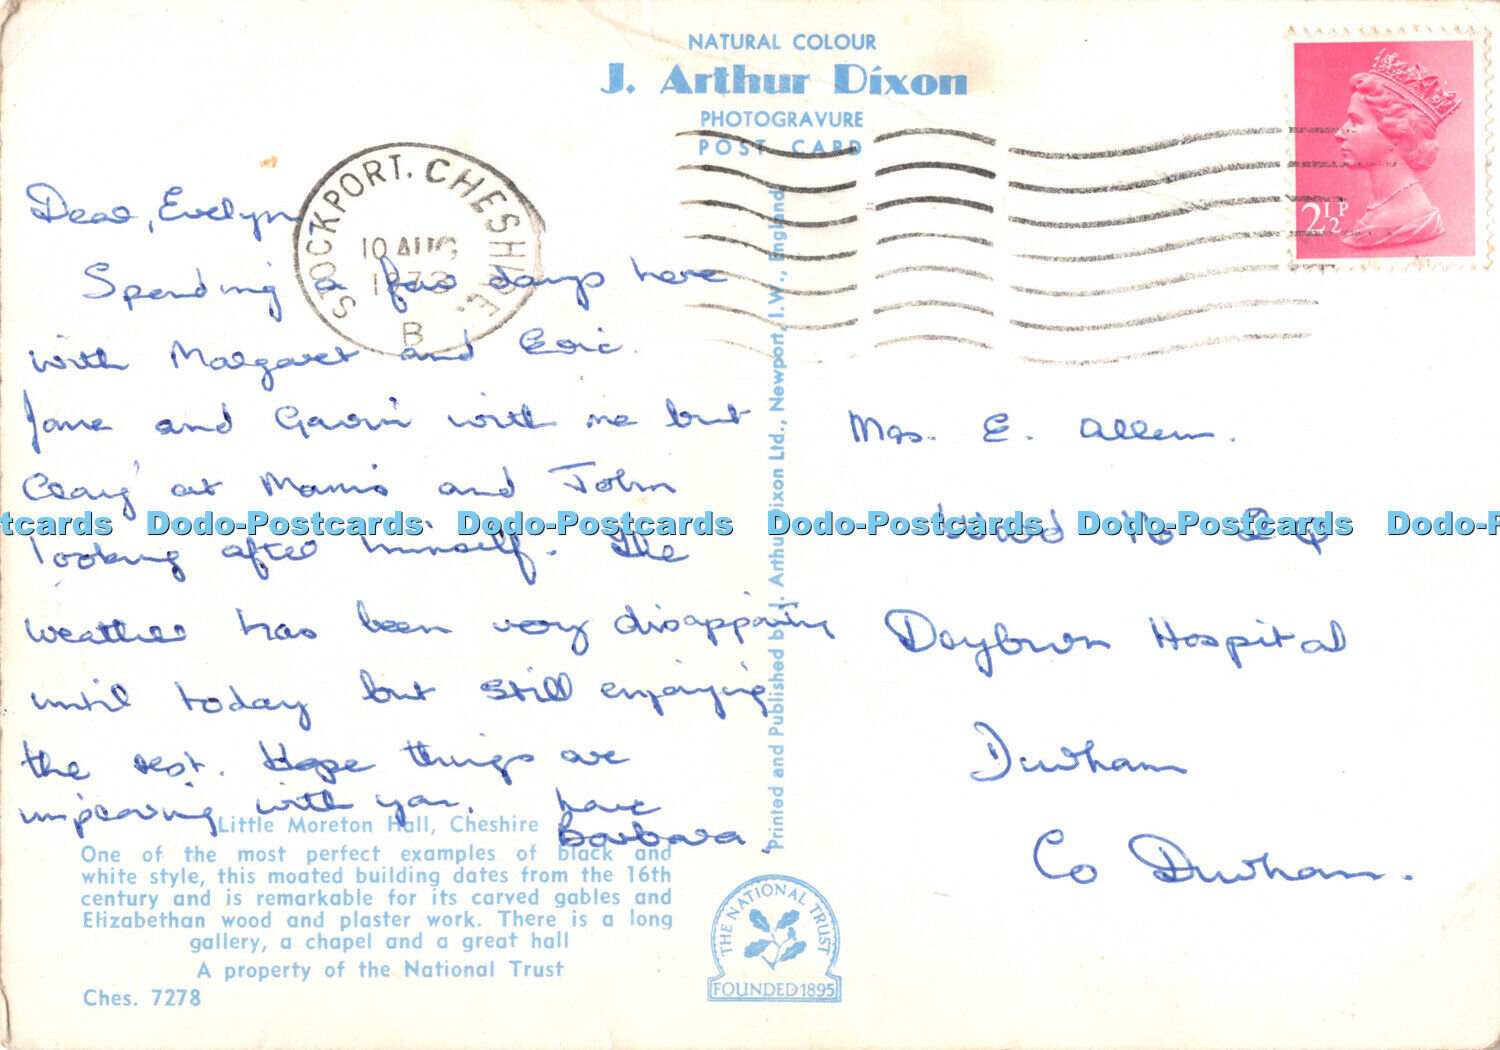 NATURAL COLOUR
J. Arthur Dixon
PHOTOGRAVURE
POST CARD
STOCKPORT. CHESHIRE.
10 AUG
B
2½P
Dear, Evelyn,
Spending a few days here
with Margaret and Eric.
Jane and Gavin with me but
Craig at Mams and John
looking after himself. The
weather has been very disappointing
until today but still enjoying
the rest. Hope things are
improving with you. love
Barbara.
Mrs. E. Allen.
Ward 16
Dryburn Hospital
Durham
Co Durham.
Printed and Published by J. Arthur Dixon Ltd., Newport, I.W., England
Little Moreton Hall, Cheshire
One of the most perfect examples of black and
white style, this moated building dates from the 16th
century and is remarkable for its carved gables and
Elizabethan wood and plaster work. There is a long
gallery, a chapel and a great hall
A property of the National Trust
Ches. 7278
THE NATIONAL TRUST
FOUNDED 1895
tcards Dodo-Postcards Dodo-Postcards Dodo-Postcards Dodo-Postcards Dodo-P